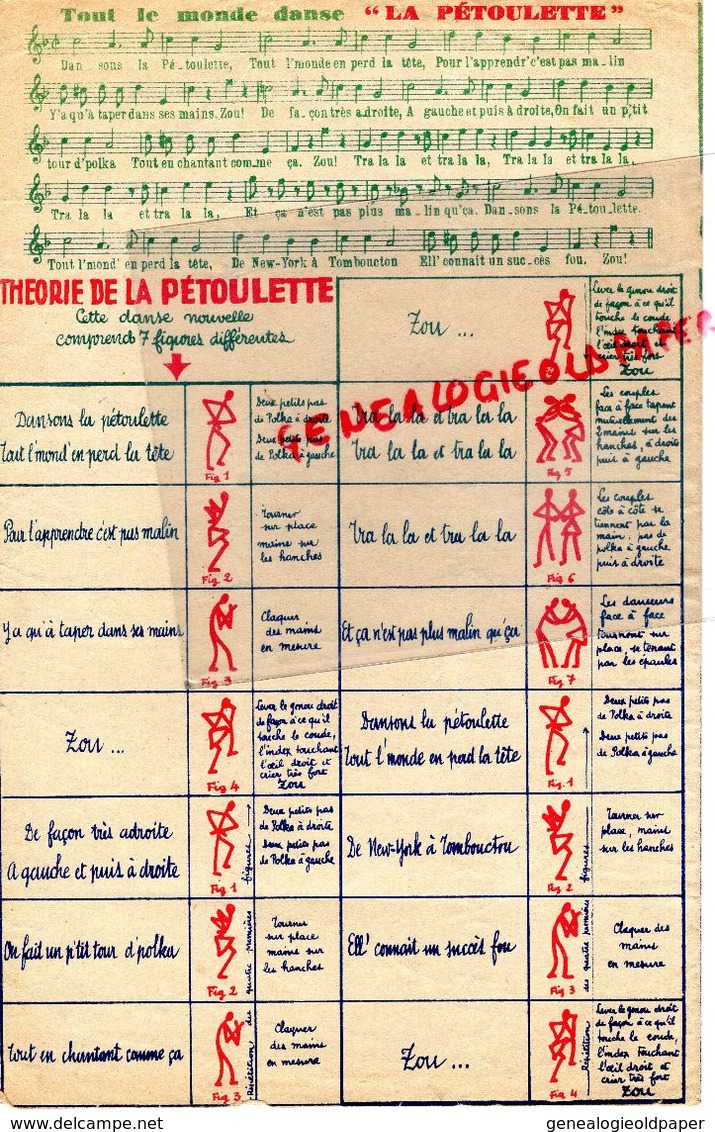 Tout le monde danse "LA PÉTOULETTE"
Dan sons la Pé-toulette, Tout l'monde en perd la tête, Pour l'apprendr' c'est pas ma-lin
Y'a qu'à taper dans ses mains. Zou! De fa-çon très adroite, A gauche et puis à droite, On fait un p'tit
tour d'polka Tout en chantant com-me ça. Zou! Tra la la et tra la la, Tra la la et tra la la,
Tra la la et tra la la, Et ça n'est pas plus ma-lin qu'ça. Dan-sons la Pé-tou-lette.
Tout l'mond' en perd la tête, De New-York à Tomboucton Ell' connait un suc-cès fou. Zou!
THEORIE DE LA PÉTOULETTE
Cette danse nouvelle
comprend 7 figures différentes
Zou ...
Lever le genou droit
de façon à ce qu'il
touche le coude
l'index touchant
l'œil droit et
crier très fort
Zou
Dansons la pétoulette
Tout l'mond' en perd la tête
Fig 1
Deux petits pas
de Polka à droite
Deux petits pas
de Polka à gauche
Tra la la et tra la la
Tra la la et tra la la
Fig 5
Les couples
face à face tapent
mutuellement des
2 mains sur les
hanches, à droite
puis à gauche
GENEALOGIEOLDPAPER
Pour l'apprendre c'est pas malin
Fig 2
Tourner
sur place
mains sur
les hanches
Tra la la et tra la la
Fig 6
Les couples
côte à côte se
tiennent par la
main: pas de
polka à gauche
puis à droite
Y a qu'à taper dans ses mains
Fig 3
Claquer
des mains
en mesure
Et ça n'est pas plus malin qu'ça
Fig 7
Les danseurs
face à face
tournont sur
place, se tenant
par les épaules
Zou ...
Fig 4
Lever le genou droit
de façon à ce qu'il
touche le coude,
l'index touchant
l'œil droit et
crier très fort
Zou
Dansons la pétoulette
Tout l'monde en perd la tête
Fig. 1
Deux petits pas
de Polka à droite
Deux petits pas
de Polka à gauche
De façon très adroite
A gauche et puis à droite
Fig 1
Deux petits pas
de Polka à droite
Deux petits pas
de Polka à gauche
De New-York à Tombouctou
Fig 2
Tourner sur
place, mains
sur les hanches
On fait un p'tit tour d'polka
Fig 2
Tourner
sur place
mains sur
les hanches
Ell' connait un succès fou
Fig 3
Claquer des
mains
en mesure
Tout en chantant comme ça
Fig 3
Répétition des quatre premières figures
Claquer
des mains
en mesure
Zou ...
Fig 4
Répétition des quatre premières figures
Lever le genou droit
de façon à ce qu'il
touche le coude,
l'index touchant
l'œil droit et
crier très fort
Zou
genealogieoldpaper